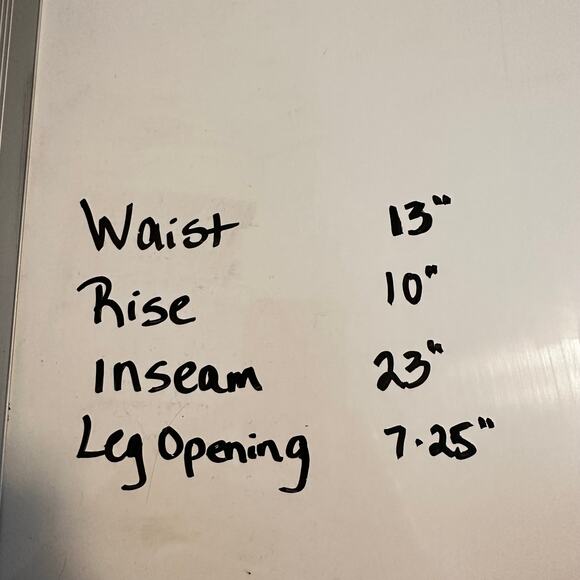 Waist 13"
Rise 10"
Inseam 23"
Leg Opening 7.25"